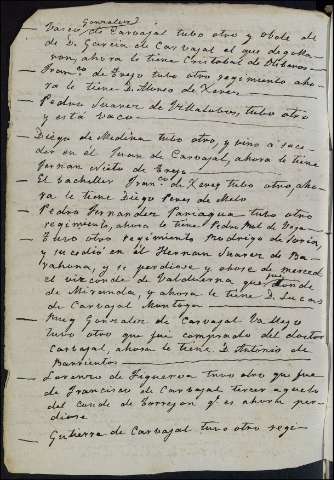 Gonzalez
Vasco de Carvajal tubo otro y obole el
de D. Garcia de Carvajal el que degolla
ron, ahora le tiene Cristobal de
Franco de Trejo tubo otro regimiento aho
ra le tiene D. Alonso de Xerez
Pedro Suarez de Villalobos, tubo otro
y está vaco
Diego de Medina tubo otro, y vino a suce
der en él Juan de Carvajal, ahora le tiene
Hernan Nieto de Trejo
El bachiller Franco de Xerez tubo otro, aho
ra le tiene Diego Perez de Melo
Pedro Fernandez Paniagua tubo otro
regimiento, ahora le tiene Pedro Rol de Vega
Tuvo otro regimiento Rodrigo de Soria,
y sucedió en él Hernan Suarez de Ba
rahona, y se perdiese y obose de merced
el vizconde de Valduerna que fué conde
de Miranda, y ahora le tiene D. Lucas
de Carvajal Montoya
Ruy Gonzalez de Carvajal Vallejo
tuvo otro que fué comprado del doctor
Carvajal, ahora le tiene D. Antonio de
Barrientos
Lorenzo de Figueroa tuvo otro que fue
de Francisco de Carvajal tercer aguelo
del conde de Torrejon qe es ahora per
diose
Gutierre de Carvajal tuvo otro regi